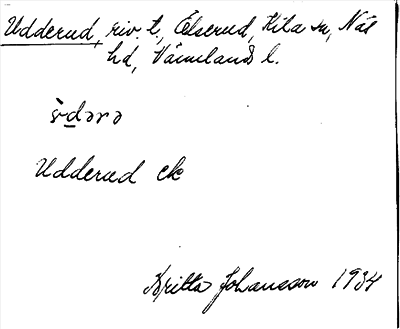 Udderud, riv. t, Elserud, Kila sn, Näs
hd, Värmlands l.
Udderud ek
Britta Johansson 1934